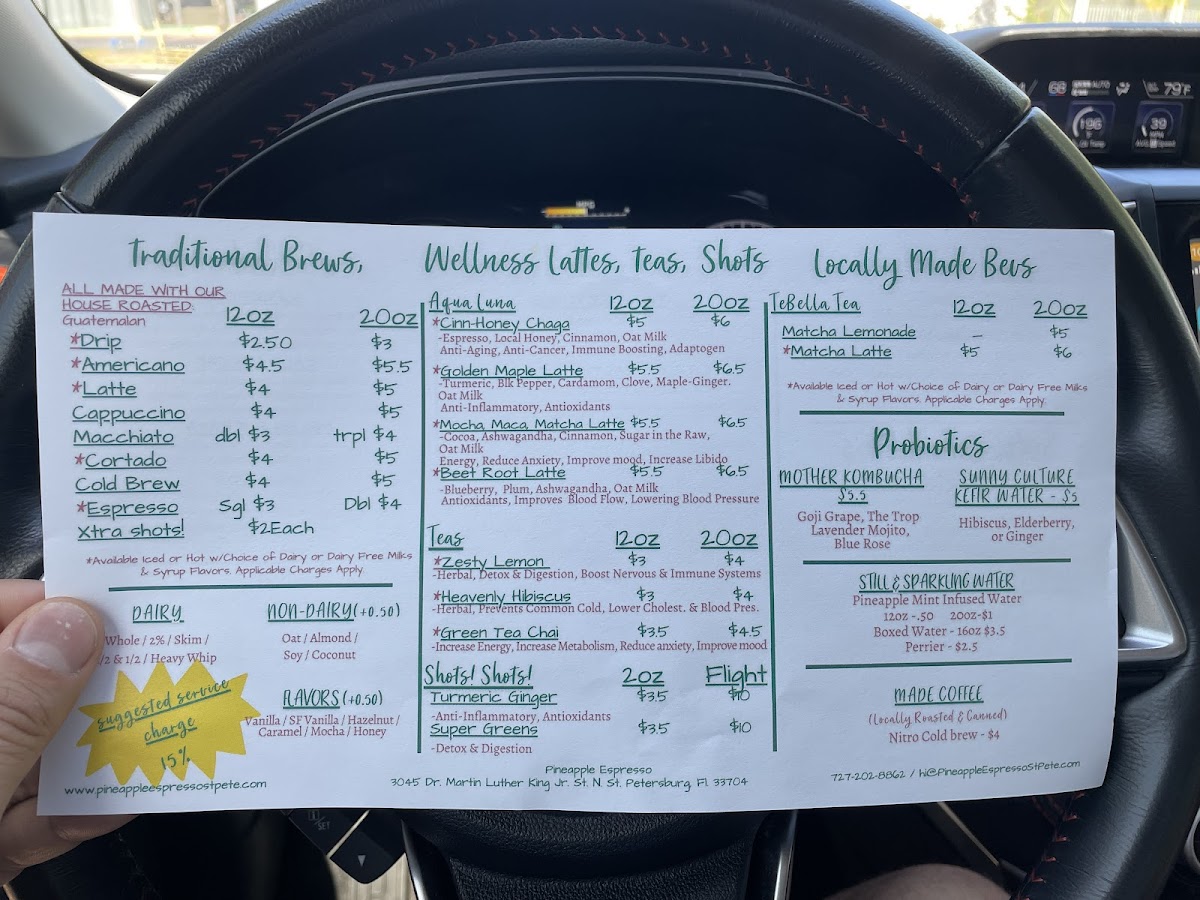 Traditional Brews,
ALL MADE WITH OUR
HOUSE ROASTED:
Guatemalan
12oz 20oz
*Drip $2.50 $3
*Americano $4.5 $5.5
*Latte $4 $5
Cappuccino $4 $5
Macchiato dbl $3 trpl $4
*Cortado $4 $5
Cold Brew $4 $5
*Espresso Sgl $3 Dbl $4
Xtra shots! $2Each
*Available Iced or Hot w/Choice of Dairy or Dairy Free Milks
& Syrup Flavors. Applicable Charges Apply.
DAIRY
Whole / 2% / Skim /
1/2 & 1/2 / Heavy Whip
NON-DAIRY(+0.50)
Oat / Almond /
Soy / Coconut
FLAVORS (+0.50)
Vanilla / SF Vanilla / Hazelnut /
Caramel / Mocha / Honey
suggested service
charge
15%
www.pineappleespressostpete.com
Wellness Lattes, Teas, Shots
Aqua Luna 12oz 20oz
*Cinn-Honey Chaga $5 $6
-Espresso, Local Honey, Cinnamon, Oat Milk
Anti-Aging, Anti-Cancer, Immune Boosting, Adaptogen
*Golden Maple Latte $5.5 $6.5
-Turmeric, Blk Pepper, Cardamom, Clove, Maple-Ginger.
Oat Milk
Anti-Inflammatory, Antioxidants
*Mocha, Maca, Matcha Latte $5.5 $6.5
-Cocoa, Ashwagandha, Cinnamon, Sugar in the Raw,
Oat Milk
Energy, Reduce Anxiety, Improve mood, Increase Libido
*Beet Root Latte $5.5 $6.5
-Blueberry, Plum, Ashwagandha, Oat Milk
Antioxidants, Improves Blood Flow, Lowering Blood Pressure
Teas 12oz 20oz
*Zesty Lemon $3 $4
-Herbal, Detox & Digestion, Boost Nervous & Immune Systems
*Heavenly Hibiscus $3 $4
-Herbal, Prevents Common Cold, Lower Cholest. & Blood Pres.
*Green Tea Chai $3.5 $4.5
-Increase Energy, Increase Metabolism, Reduce anxiety, Improve mood
Shots! Shots! 2oz Flight
Turmeric Ginger $3.5 $10
-Anti-Inflammatory, Antioxidants
Super Greens $3.5 $10
-Detox & Digestion
Pineapple Espresso
3045 Dr. Martin Luther King Jr. St. N. St. Petersburg, Fl. 33704
Locally Made Bevs
TeBella Tea 12oz 20oz
Matcha Lemonade – $5
*Matcha Latte $5 $6
*Available Iced or Hot w/Choice of Dairy or Dairy Free Milks
& Syrup Flavors. Applicable Charges Apply.
Probiotics
MOTHER KOMBUCHA
$5.5
Goji Grape, The Trop
Lavender Mojito,
Blue Rose
SUNNY CULTURE
KEFIR WATER - $5
Hibiscus, Elderberry,
or Ginger
STILL & SPARKLING WATER
Pineapple Mint Infused Water
12oz -.50 20oz-$1
Boxed Water - 16oz $3.5
Perrier - $2.5
MADE COFFEE
(Locally Roasted & Canned)
Nitro Cold brew - $4
727-202-8862 / hi@PineappleEspressoStPete.com
68 AUTO 79°F
196
39
MPH
SET